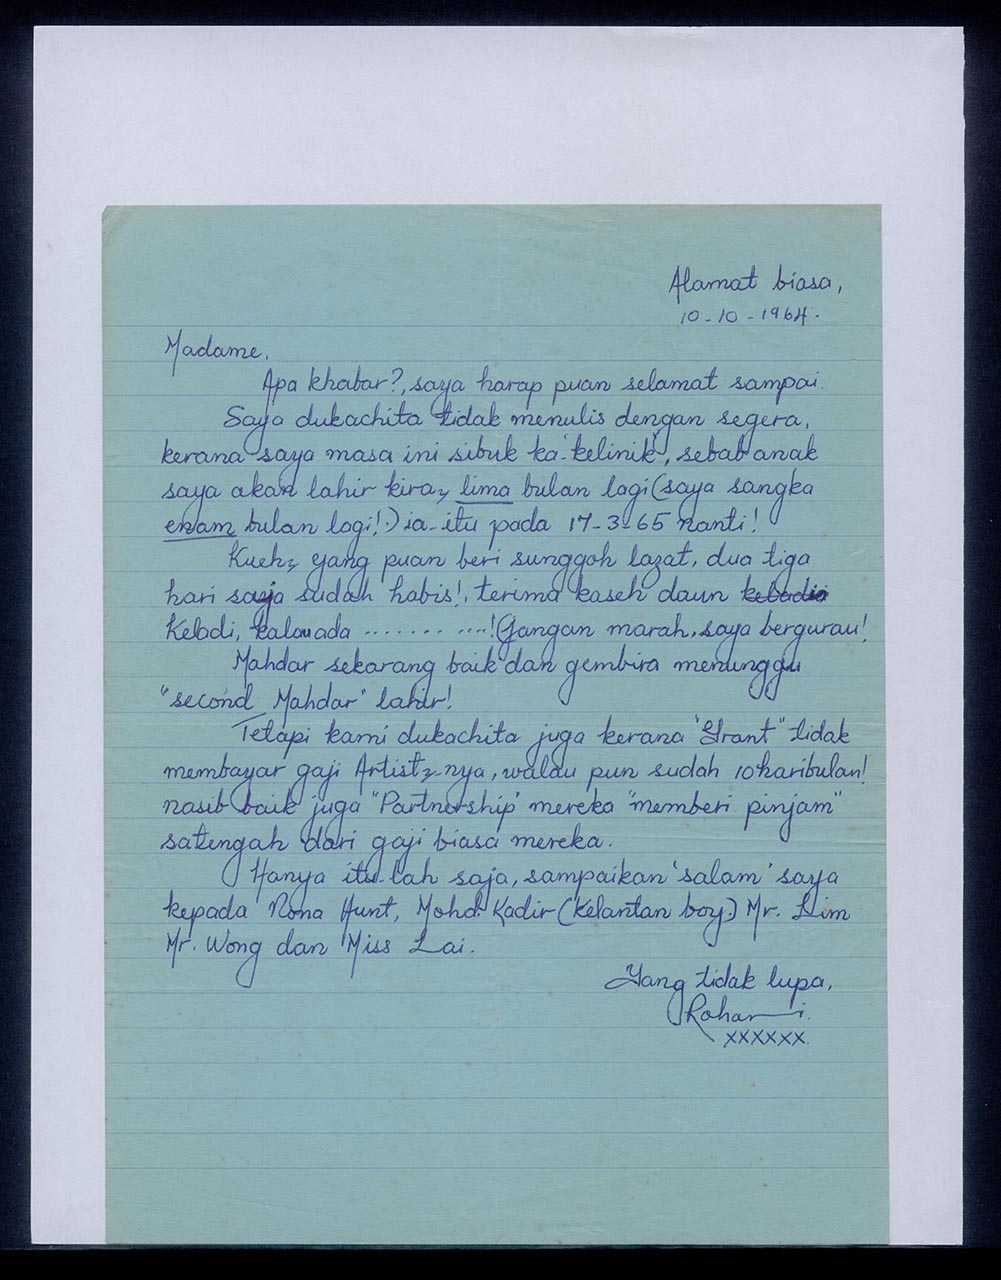 Alamat biasa,
10-10-1964.
Madame,
Apa khabar?, saya harap puan selamat sampai.
Saya dukachita tidak menulis dengan segera,
kerana saya masa ini sibuk ka-kelinik, sebab anak
saya akan lahir kira2 lima bulan lagi (saya sangka
enam bulan lagi!.) ia-itu pada 17-3-65 nanti!
Kueh2 yang puan beri sunggoh lazat, dua tiga
hari saja sudah habis!, terima kaseh daun kebadia
Keladi, kalau ada ...........! (Jangan marah, saya bergurau!
Mahdar sekarang baik dan gembira menunggu
"second Mahdar" lahir!
Tetapi kami dukachita juga kerana "Grant" tidak
membayar gaji Artist2-nya, walau pun sudah 10 haribulan!
nasib baik juga "Partnership" mereka "memberi pinjam"
satengah dari gaji biasa mereka.
Hanya itu-lah saja, sampaikan 'salam' saya
kepada Rona Hunt, Mohd. Kadir (Kelantan boy.) Mr. Lim
Mr. Wong dan Miss Lai.
Yang tidak lupa,
Rohani.
xxxxxx.